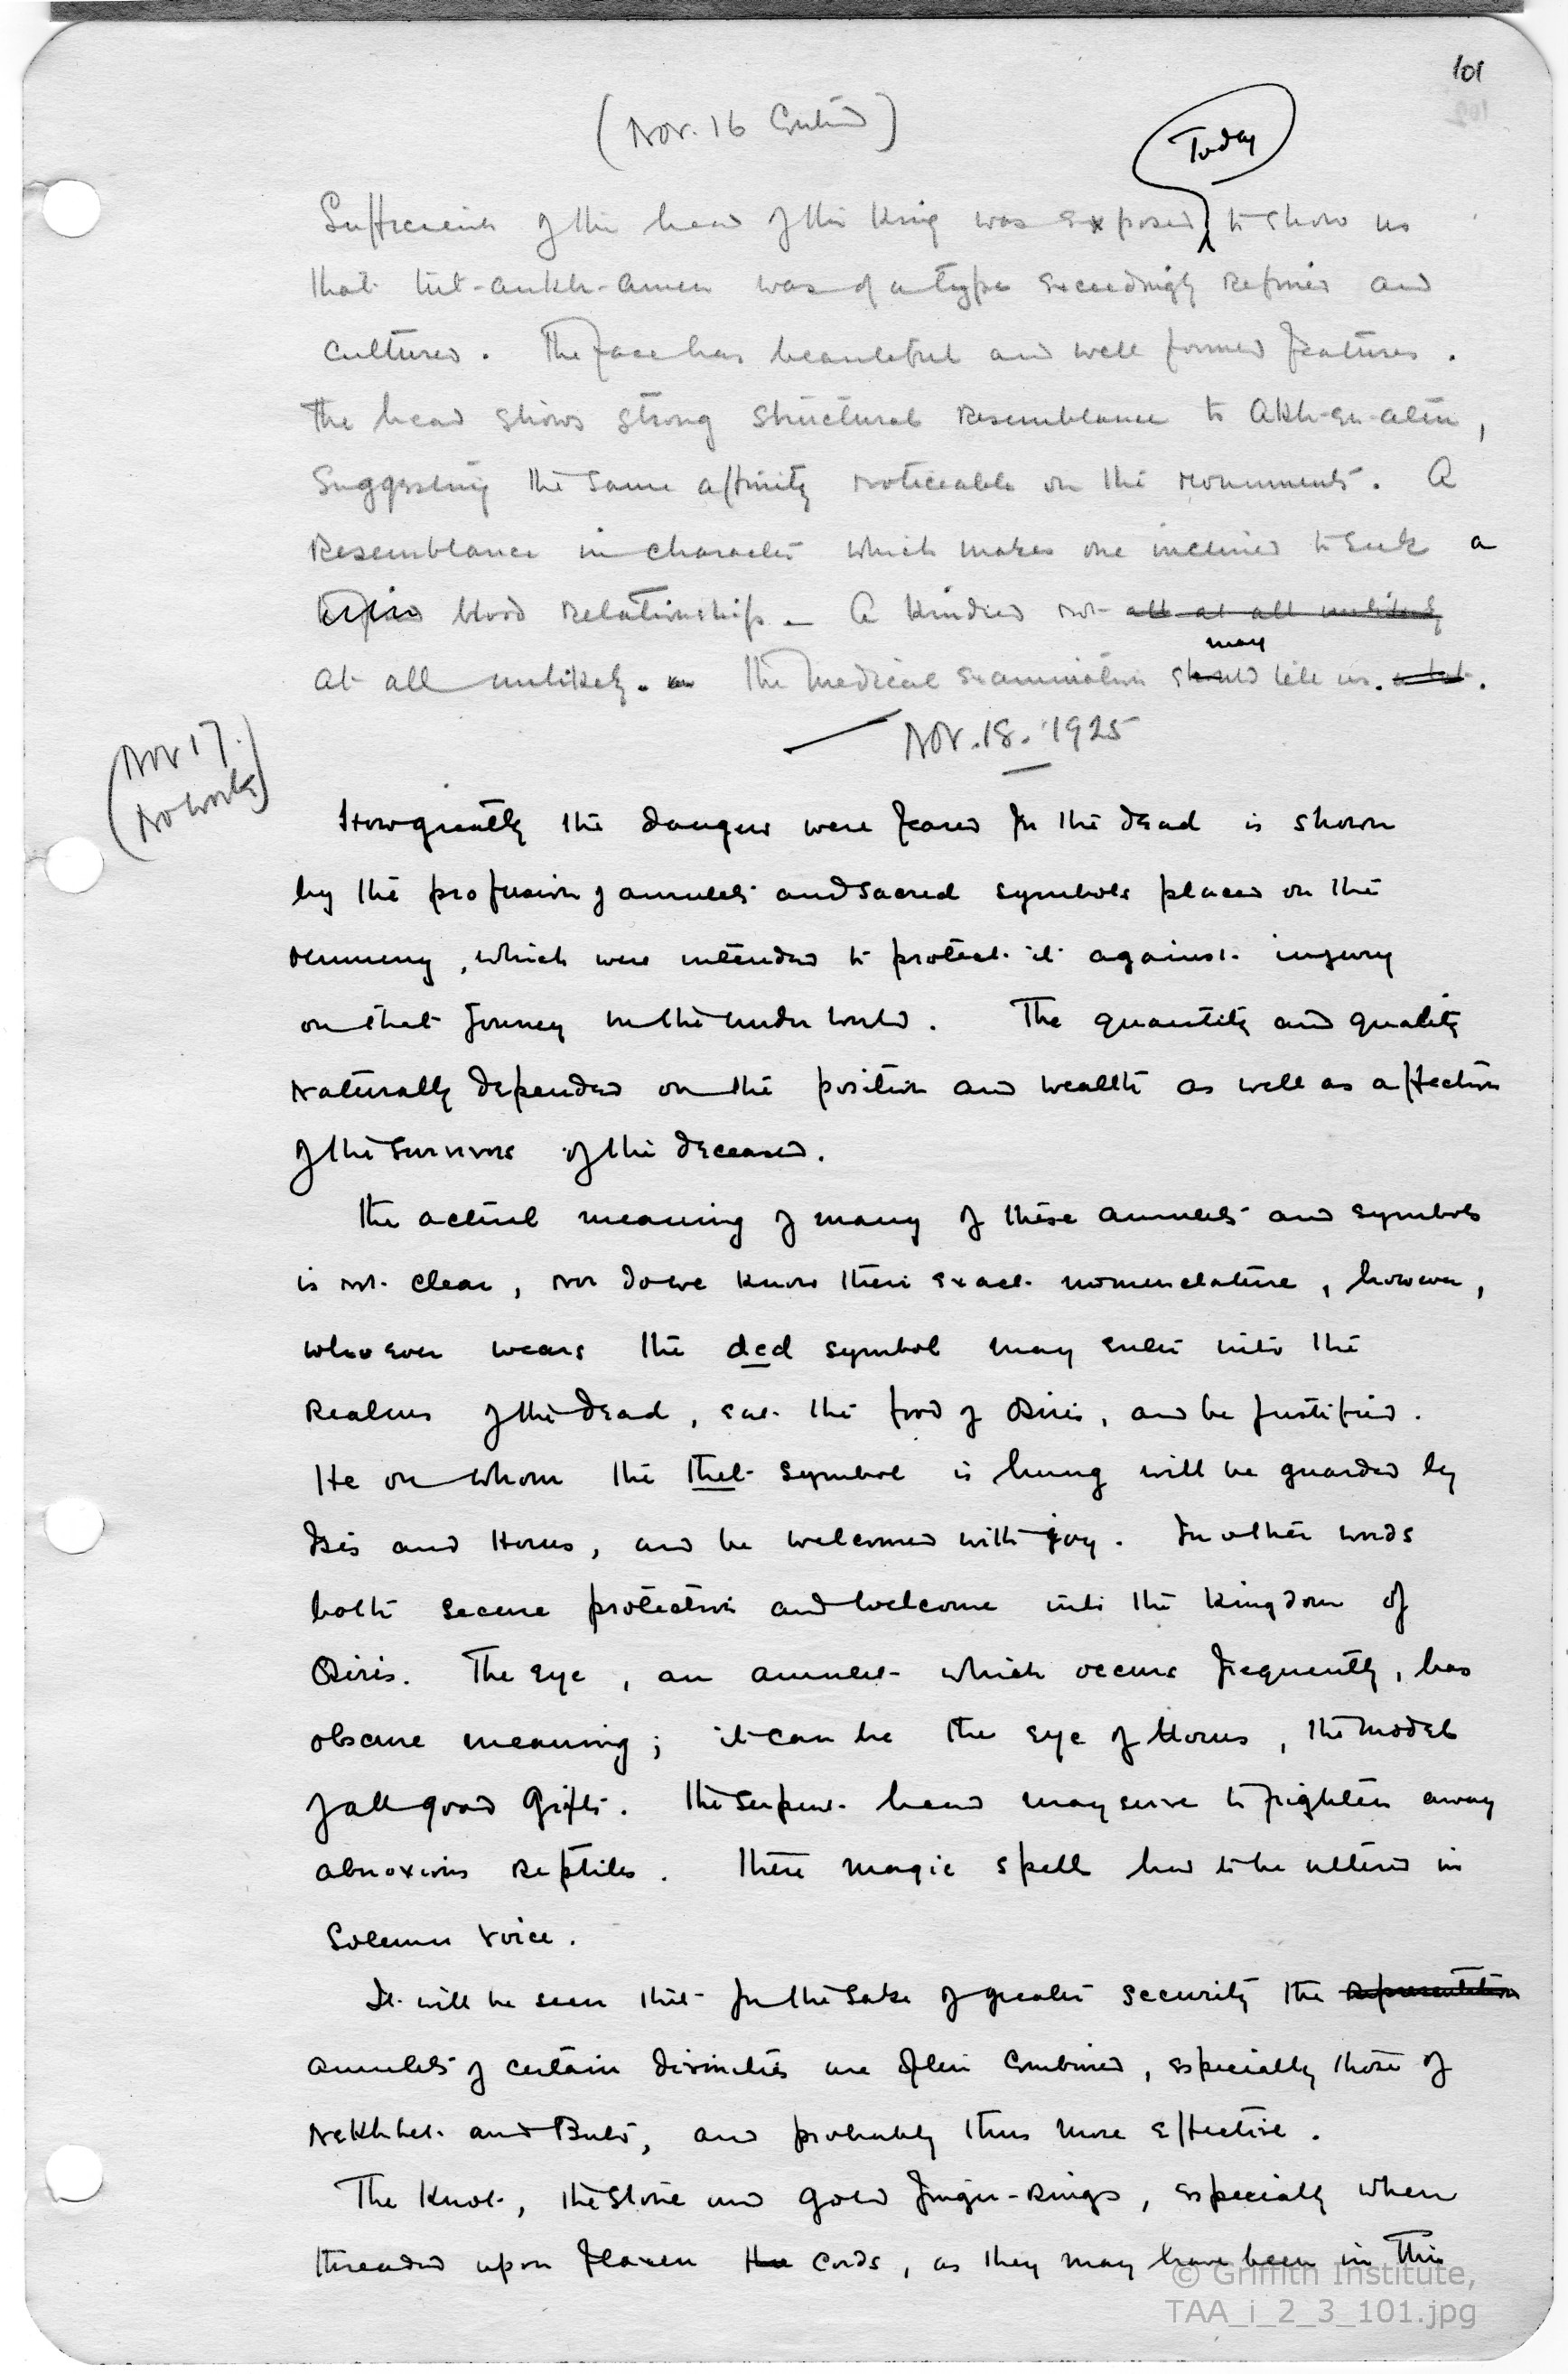 101
(Nov. 16 Contind)
Today
Sufficient of the head of the King was exposed to show us
that Tut-ankh-amen was of a type exceedingly refined and
cultured. The face has beautiful and well formed features.
The head shows strong structural resemblance to Akh-en-aten,
suggesting the same affinity noticeable on the monuments. A
Resemblance in character which makes one inclined to seek a
blood relationship - A kindred not all at all unlikely
may
at all unlikely. The medical examination should tell us.
Nov. 18. 1925
(Nov 17.
No work)
How greatly the dangers were feared for the dead is shown
by the profusion of amulets and sacred symbols placed on the
mummy, which were intended to protect it against injury
on that journey in the under world. The quantity and quality
naturally depended on the position and wealth as well as affection
of the survivors of the deceased.
The actual meaning of many of these amulets and symbols
is not clear, nor do we know their exact nomenclature, however,
whoever wears the ded symbol may enter into the
Realms of the dead, eat the food of Osiris, and be justified.
He on whom the thet symbol is hung will be guarded by
Isis and Horus, and be welcomed with joy. In other words
both secure protection and welcome into the kingdom of
Osiris. The eye, an amulet which occurs frequently, has
obscure meaning; it can be the eye of Horus, the model
of all good gifts. The serpent head may serve to frighten away
abnoxious reptiles. There magic spell had to be uttered in
solemn voice.
It will be seen that for the sake of greater security the representation
amulets of certain divinities are often combined, especially those of
Nekhbet and Buto, and probably thus more effective.
The Knot, the stone and gold finger-rings, especially when
threaded upon flaxen the cords, as they may have been in this
© Griffith Institute,
TAA_i_2_3_101.jpg